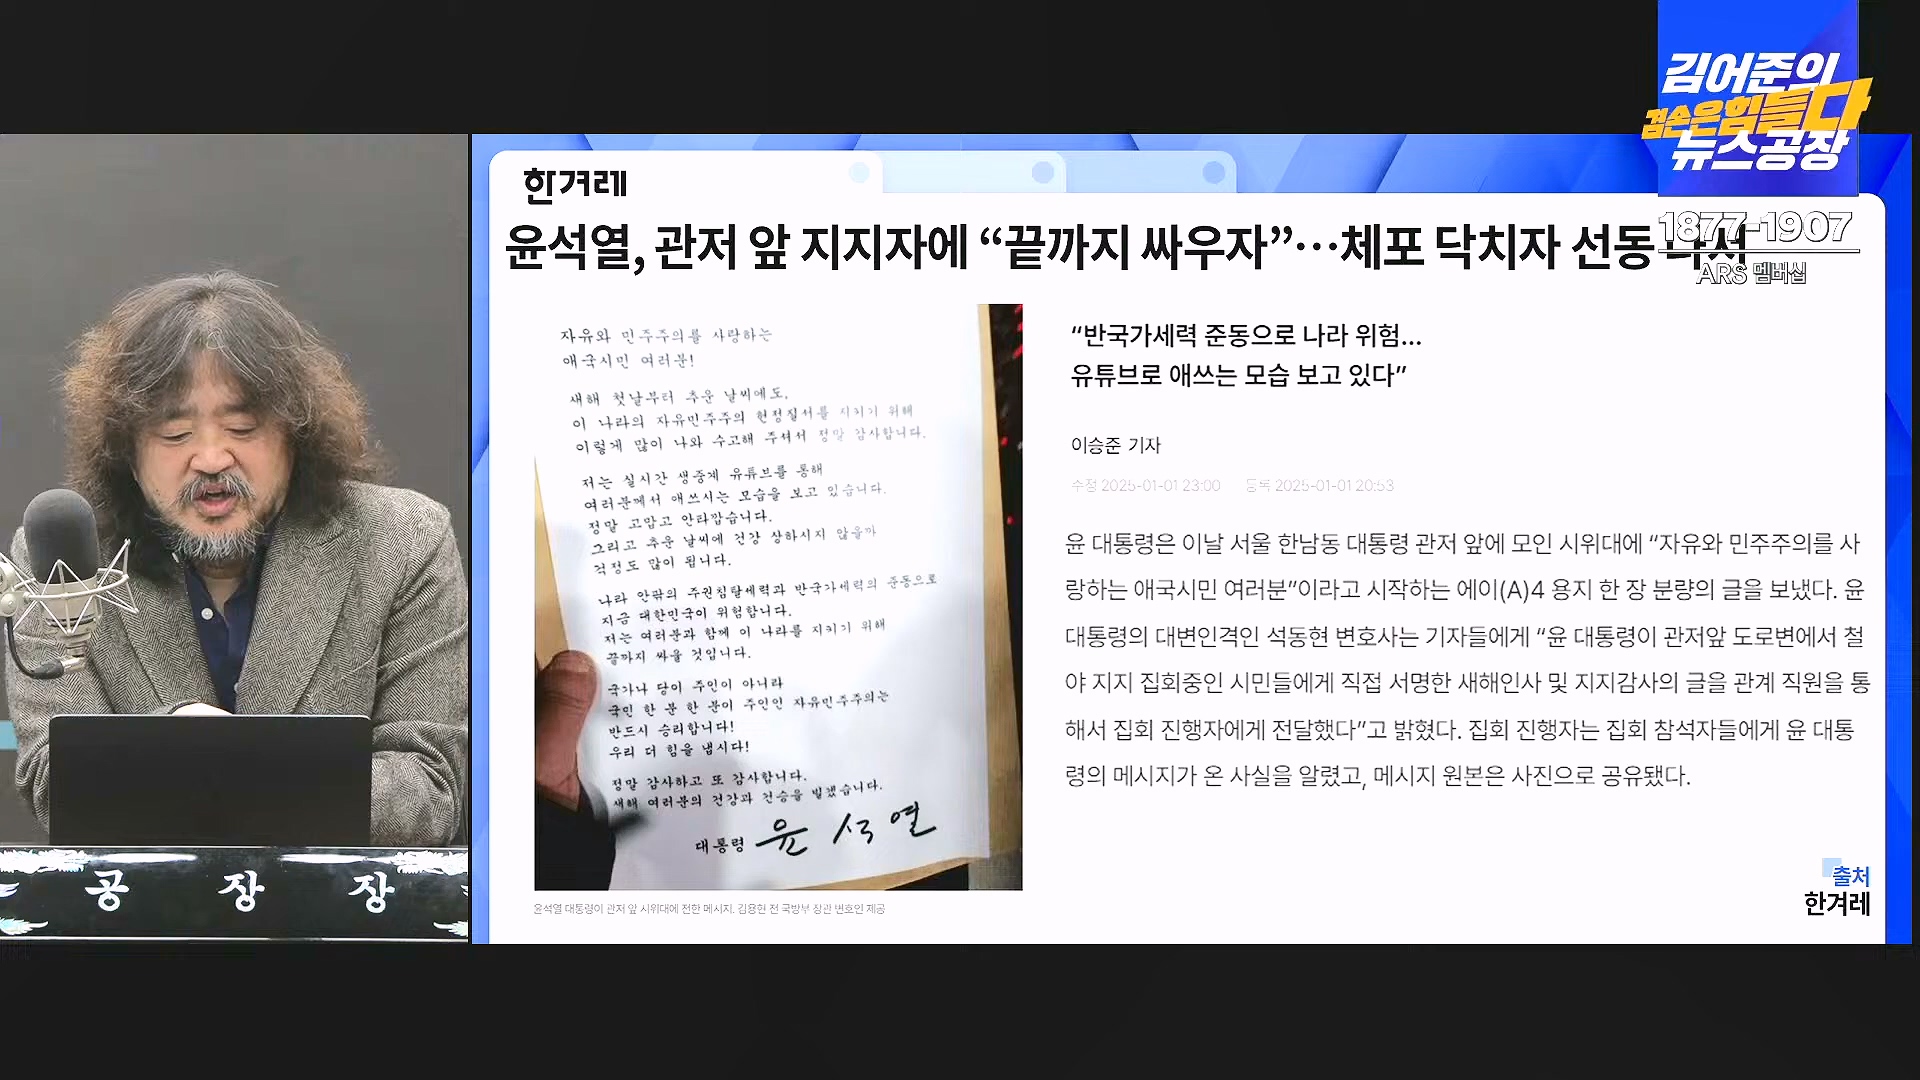 김어준의
겸손은힘들다
뉴스공장
1877-1907
ARS 멤버십
한겨레
윤석열, 관저 앞 지지자에 “끝까지 싸우자”…체포 닥치자 선동 나서
자유와 민주주의를 사랑하는
애국시민 여러분!
새해 첫날부터 추운 날씨에도,
이 나라의 자유민주주의 헌정질서를 지키기 위해
이렇게 많이 나와 수고해 주셔서 정말 감사합니다.
저는 실시간 생중계 유튜브를 통해
여러분께서 애쓰시는 모습을 보고 있습니다.
정말 고맙고 안타깝습니다.
그리고 추운 날씨에 건강 상하시지 않을까
걱정도 많이 됩니다.
나라 안팎의 주권침탈세력과 반국가세력의 준동으로
지금 대한민국이 위험합니다.
저는 여러분과 함께 이 나라를 지키기 위해
끝까지 싸울 것입니다.
국가나 당이 주인이 아니라
국민 한 분 한 분이 주인인 자유민주주의는
반드시 승리합니다!
우리 더 힘을 냅시다!
정말 감사하고 또 감사합니다.
새해 여러분의 건강과 건승을 빌겠습니다.
대통령 윤석열
윤석열 대통령이 관저 앞 시위대에 전한 메시지. 김용현 전 국방부 장관 변호인 제공
“반국가세력 준동으로 나라 위험...
유튜브로 애쓰는 모습 보고 있다”
이승준 기자
수정 2025-01-01 23:00 등록 2025-01-01 20:53
윤 대통령은 이날 서울 한남동 대통령 관저 앞에 모인 시위대에 “자유와 민주주의를 사
랑하는 애국시민 여러분”이라고 시작하는 에이(A)4 용지 한 장 분량의 글을 보냈다. 윤
대통령의 대변인격인 석동현 변호사는 기자들에게 “윤 대통령이 관저앞 도로변에서 철
야 지지 집회중인 시민들에게 직접 서명한 새해인사 및 지지감사의 글을 관계 직원을 통
해서 집회 진행자에게 전달했다”고 밝혔다. 집회 진행자는 집회 참석자들에게 윤 대통
령의 메시지가 온 사실을 알렸고, 메시지 원본은 사진으로 공유됐다.
출처
한겨레
공 장 장